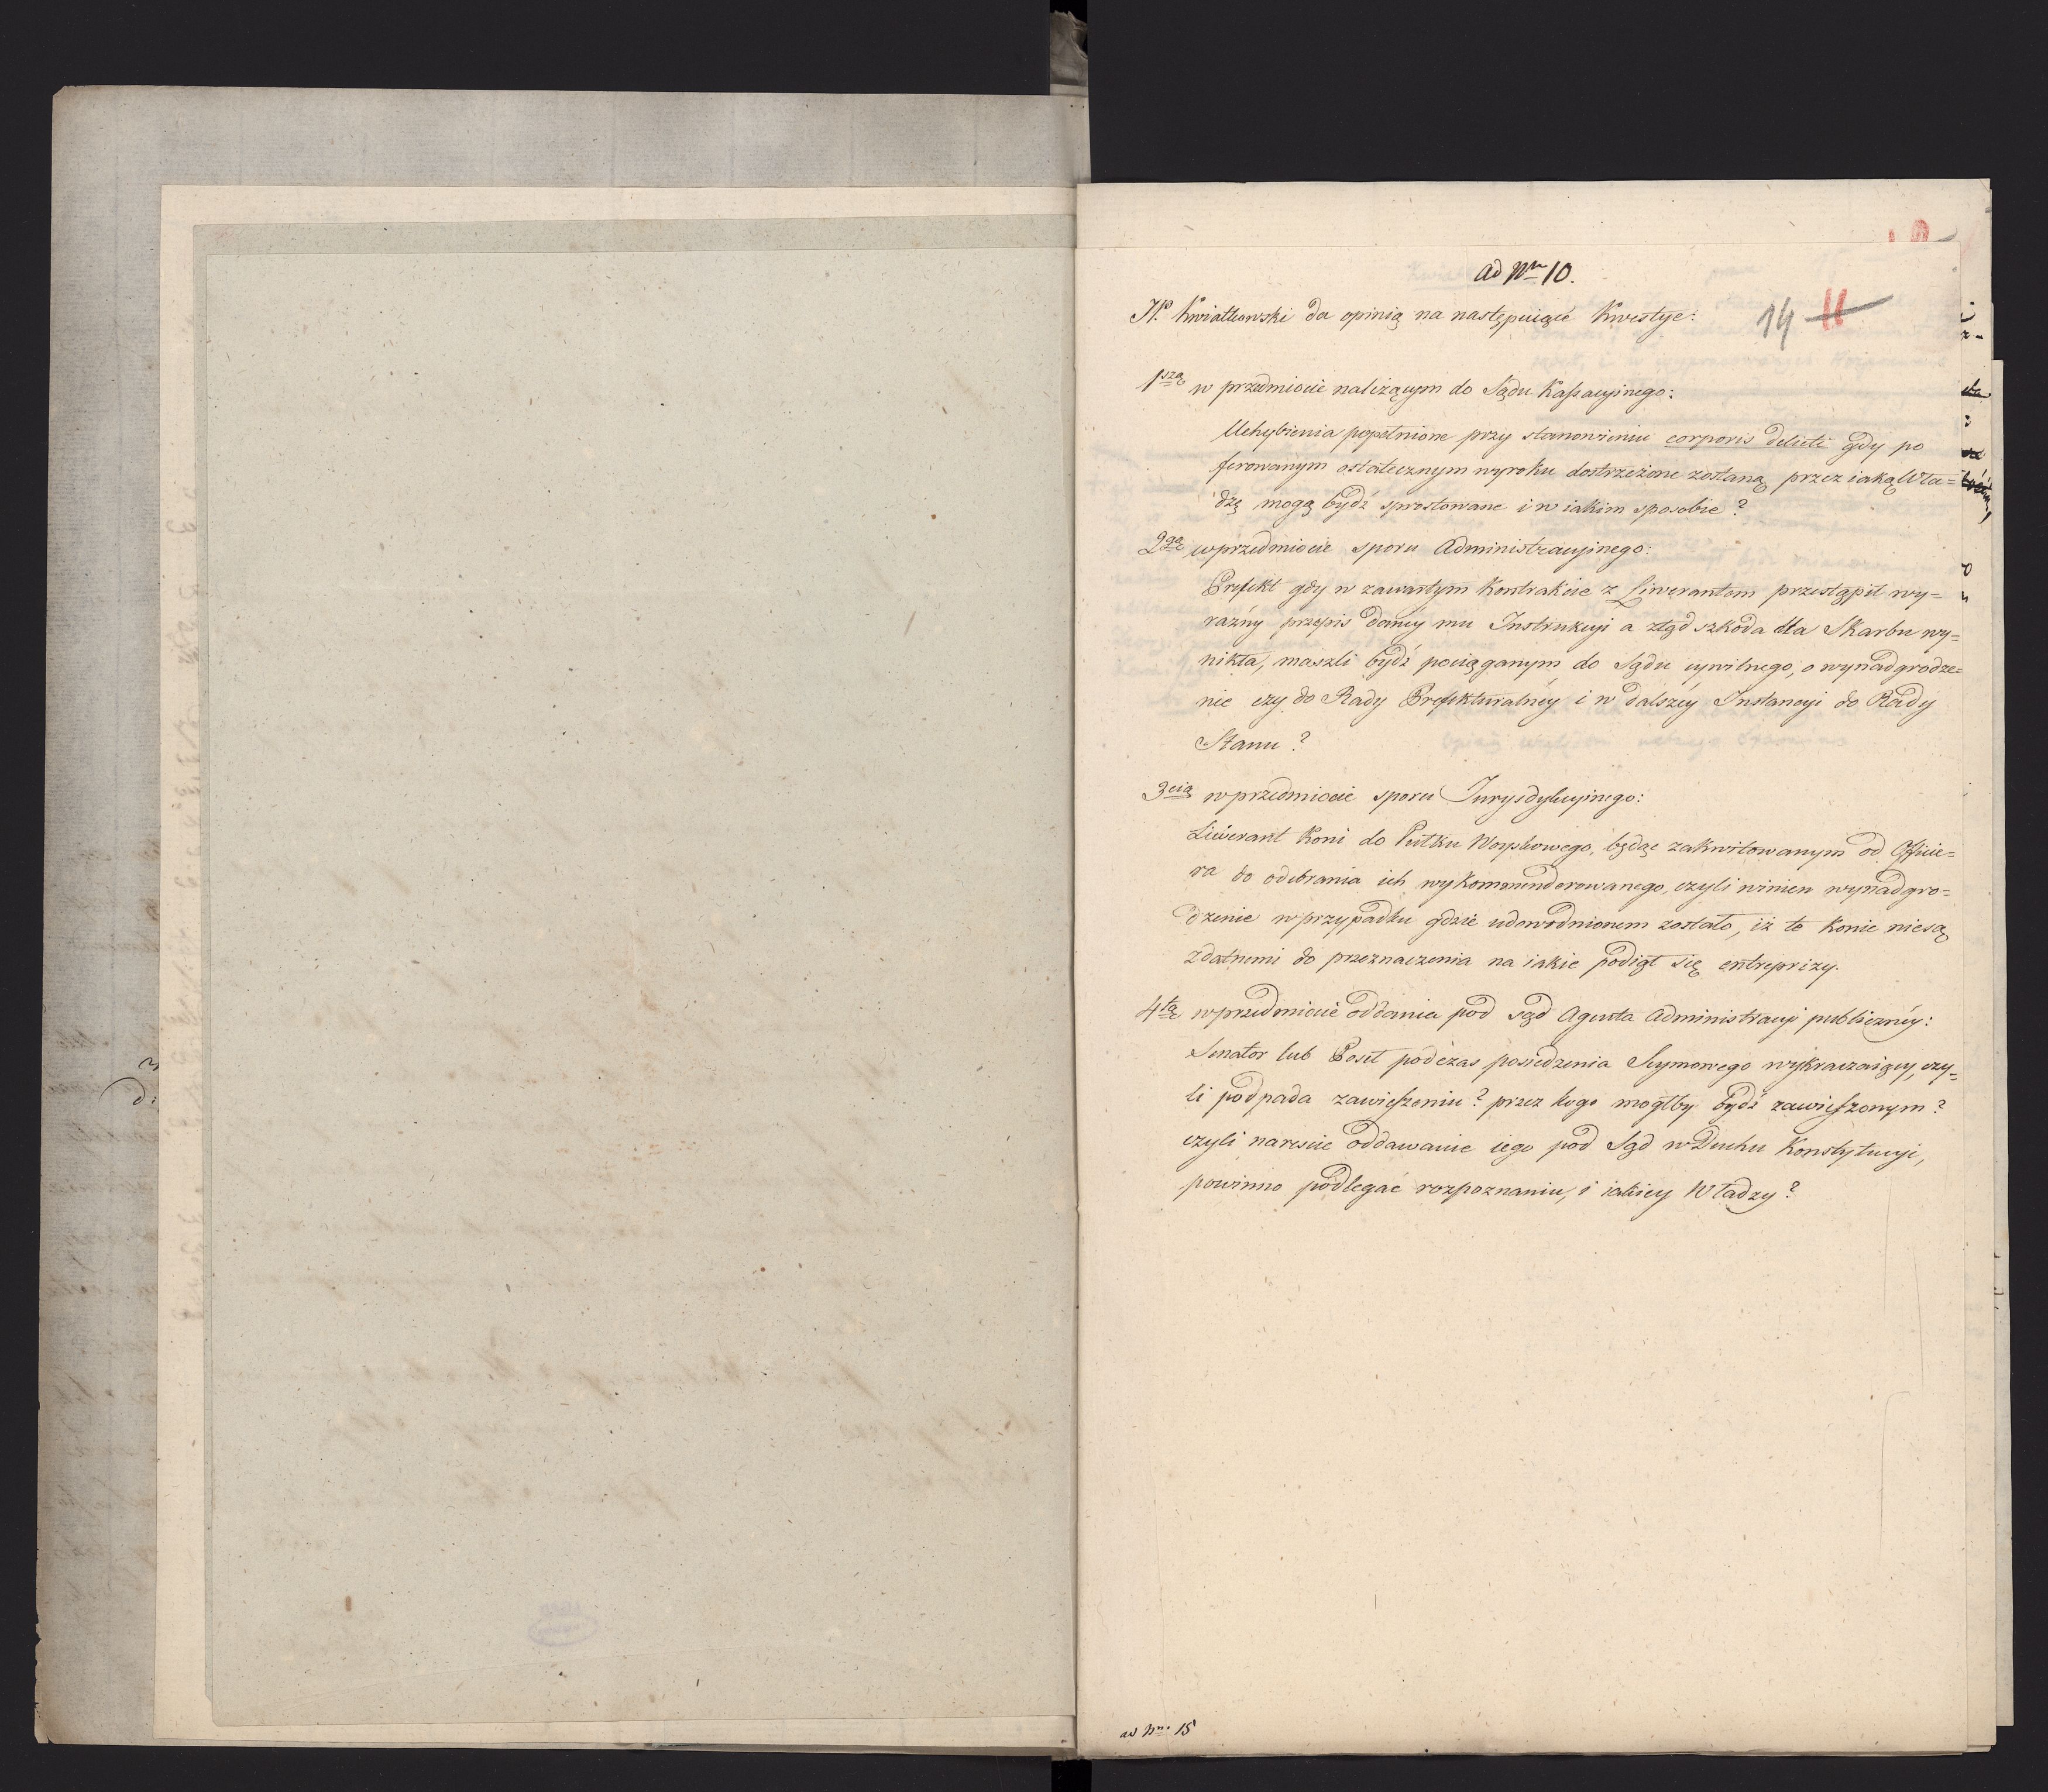 ad Nr 10.
JP. Kwiatkowski da opinią na następuiące Kwestye:
14 11
1szą w przedmiocie należącym do Sądu Kassacyinego:
Uchybienia popełnione przy stanowieniu corporis delicti gdy po
ferowanym ostatecznym wyroku dostrzeżone zostaną, przez iaką Wła=
dzę mogą bydź sprostowane i w iakim sposobie?
2gą w przedmiocie sporu Administracyinego:
Prefekt gdy w zawartym Kontrakcie z Liwerantem przestąpił wy=
raźny przepis daney mu Instrukcyi a ztąd szkoda dla Skarbu wy=
nikła, maszli bydź pociąganym do Sądu cywilnego, o wynadgrodze=
nie czy do Rady Prefekturalnéy i w dalszéy Instancyi do Rady
Stanu?
3cią w przedmiocie sporu Jurysdykcyinego:
Liwerant Koni do Pułku Woyskowego, będąc zakwitowanym od Officie=
ra do odebrania ich wykommenderowanego, czyli winien wynadgro=
dzenie w przypadku gdzie udowodnionem zostało, iż te Konie niesą
zdatnemi do przeznaczenia na iakie podiął się entreprizy.
4tą w przedmiocie oddania pod sąd Agenta Administracyi publicznéy:
Senator lub Poseł podczas posiedzenia Seymowego wykraczaiący, czy=
li podpada zawieszeniu? przez kogo mogłby bydź zawieszonym?
czyli naresćie oddawanie iego pod Sąd w Duchu Konstytucyi,
powinno podlegać rozpoznaniu, i iakiey Władzy?
ad Nr. 15